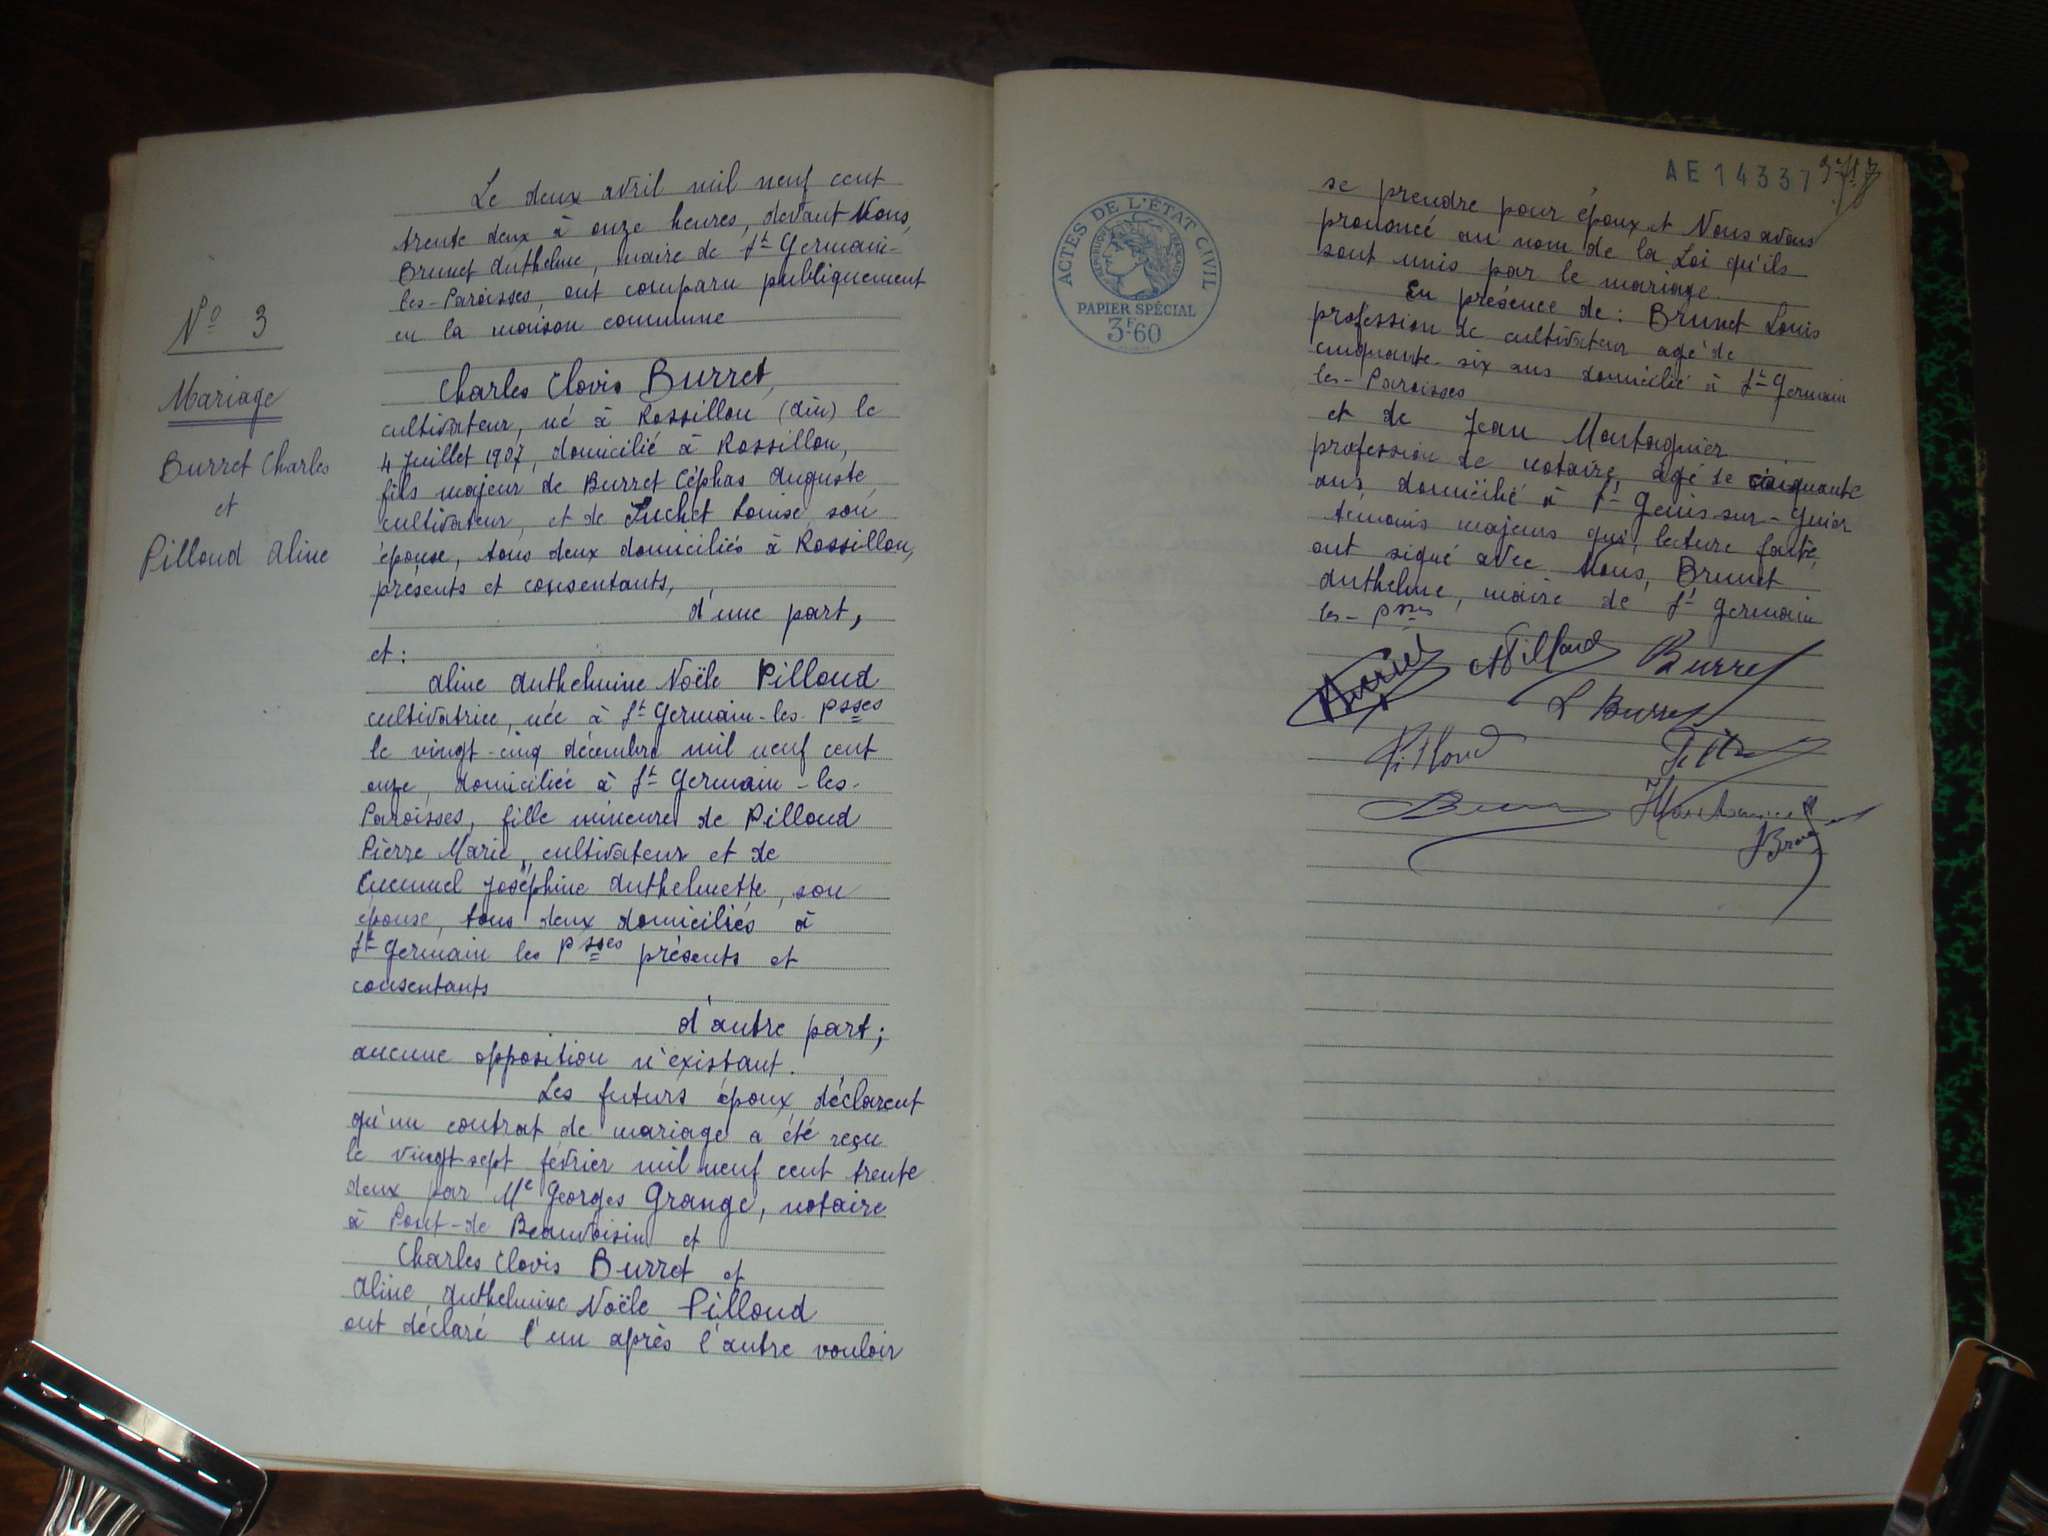 Nº 3
Mariage
Burret Charles
et
Pilloud Aline
Le deux avril mil neuf cent
trente deux à onze heures, devant Nous,
Brunet Anthelme, maire de St Germain-
les-Paroisses, ont comparu publiquement
en la maison commune
Charles Clovis Burret,
cultivateur, né à Rossillon (Ain) le
4 Juillet 1907, domicilié à Rossillon,
fils majeur de Burret Céphas Auguste,
cultivateur, et de Juchet Louise, son
épouse, tous deux domiciliés à Rossillon,
présents et consentants,
d'une part,
et:
Aline Anthelmine Noële Pilloud
cultivatrice, née à St Germain-les-Psses
le vingt-cinq décembre mil neuf cent
onze, domiciliée à St Germain-les-
Paroisses, fille mineure de Pilloud
Pierre Marie, cultivateur et de
Joséphine Anthelmette, son
épouse, tous deux domiciliés à
St Germain les Psses présents et
consentants
d'autre part;
aucune opposition n'existant.
Les futurs époux déclarent
qu'un contrat de mariage a été reçu
le vingt-sept février mil neuf cent trente
deux par Me Georges Grange, notaire
à Pont-de Beauvoisin et
Charles Clovis Burret et
Aline Anthelmine Noële Pilloud
ont déclaré l'un après l'autre vouloir
ACTES DE L'ÉTAT CIVIL
RÉPUBLIQUE FRANÇAISE
PAPIER SPÉCIAL
3F60
AE 14337
se prendre pour époux et Nous avons
prononcé au nom de la Loi qu'ils
sont unis par le mariage.
En présence de: Brunet Louis
profession de cultivateur agé de
cinquante-six ans domicilié à St Germain
les-Paroisses
et de Jean Montagnier
profession de notaire, agé de cinquante
ans, domicilié à St Genis-sur-Guier
témoins majeurs qui, lecture faite,
ont signé avec Nous, Brunet
Anthelme, maire de St Germain
les-Psses
APilloud Burret
L Burret
Pilloud